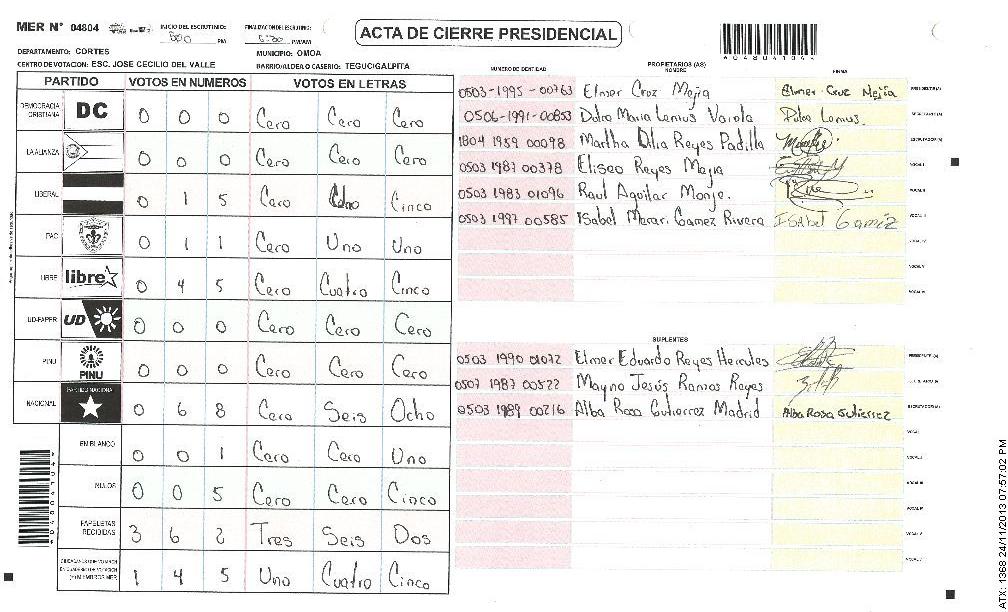 MER N° 04804
INICIO DEL ESCRUTINIO: PM
FINALIZACION DEL ESCRUTINIO: PM/AM
ACTA DE CIERRE PRESIDENCIAL
DEPARTAMENTO: CORTES
MUNICIPIO: OMOA
CENTRO DE VOTACION: ESC. JOSE CECILIO DEL VALLE
BARRIO/ALDEA O CASERIO: TEGUCIGALPITA
PARTIDO VOTOS EN NUMEROS VOTOS EN LETRAS
DEMOCRACIA CRISTIANA DC 0 0 0 Cero Cero Cero
LA ALIANZA 0 0 0 Cero Cero Cero
LIBERAL 0 1 5 Cero Uno Cinco
PAC 0 1 1 Cero Uno Uno
LIBRE libre 0 4 5 Cero Cuatro Cinco
UD-FAPER UD 0 0 0 Cero Cero Cero
PINU PINU 0 0 0 Cero Cero Cero
NACIONAL PARTIDO NACIONAL 0 6 8 Cero Seis Ocho
EN BLANCO 0 0 1 Cero Cero Uno
NULOS 0 0 5 Cero Cero Cinco
PAPELETAS RECIBIDAS 3 6 2 Tres Seis Dos
CIUDADANOS QUE VOTARON EN CUADERNO DE VOTACION (+) MIEMBROS MER 1 4 5 Uno Cuatro Cinco
NUMERO DE IDENTIDAD PROPIETARIOS (AS) NOMBRE FIRMA
0503-1995-00763 Elmer Cruz Mejia Elmer Cruz Mejia PRESIDENTE (A)
0506-1991-00853 Dulce Maria Lemus Varola Dulce Lemus SECRETARIO (A)
1804 1959 00098 Martha Dilia Reyes Padilla ESCRUTADOR (A)
0503 1987 00378 Eliseo Reyes Mejia VOCAL I
0503 1983 01096 Raul Aguilar Monje. VOCAL II
0503 1997 00585 Isabel Merari Gamez Rivera Isabel Gamez VOCAL III
VOCAL IV
VOCAL V
VOCAL VI
SUPLENTES
0503 1990 01072 Elmer Eduardo Reyes Hercules PRESIDENTE (A)
0507 1987 00522 Mayno Jesús Ramos Reyes SECRETARIO (A)
0503 1989 00216 Alba Rosa Gutierrez Madrid Alba Rosa Gutierrez ESCRUTADOR (A)
VOCAL I
VOCAL II
VOCAL III
VOCAL IV
VOCAL V
ATX: 1368 24/11/2013 07:57:02 PM